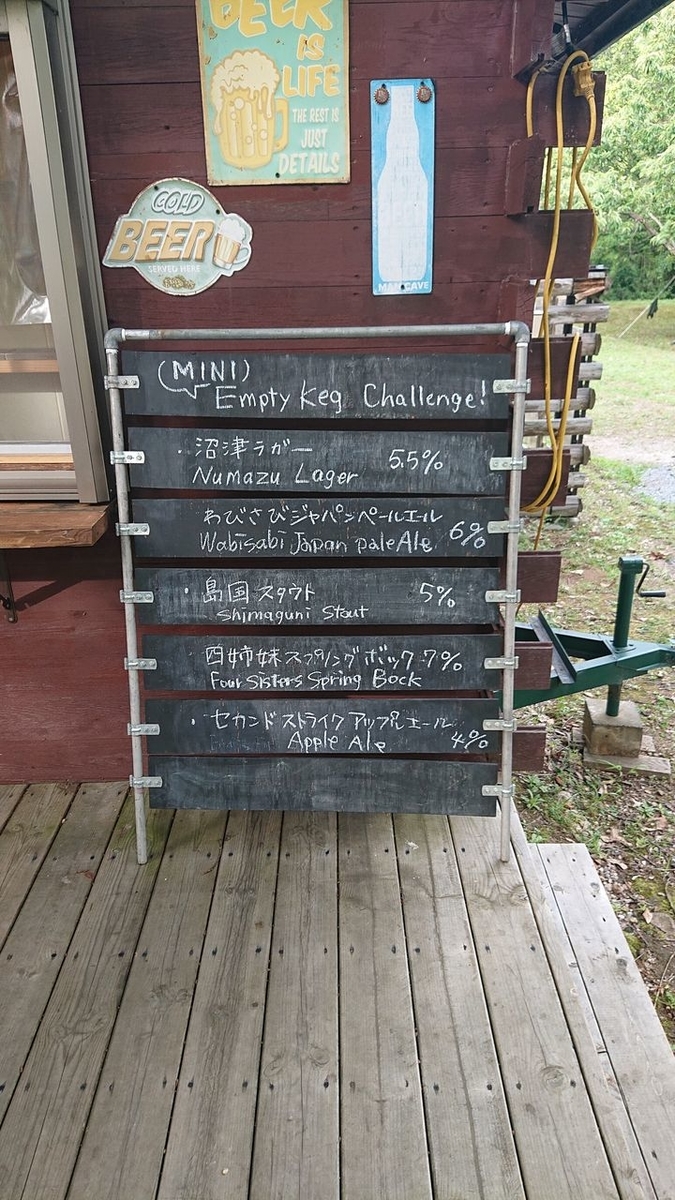 BEER
IS
LIFE
THE REST IS
JUST
DETAILS
COLD
BEER
SERVED HERE
MAN CAVE
(MINI)
Empty Keg Challenge!
・沼津ラガー 5.5%
Numazu Lager
わびさびジャパンペールエール
Wabisabi Japan pale Ale 6%
・島国スタウト 5%
Shimaguni Stout
四姉妹スプリングボック 7%
Four Sisters Spring Bock
・セカンドストライクアップルエール
Apple Ale 4%